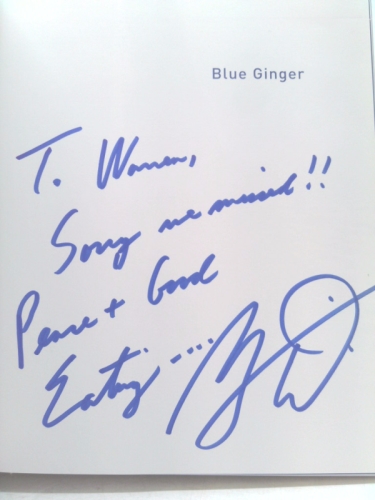 Blue Ginger
To Warren,
Sorry we missed!!
Peace + Good
Eating....